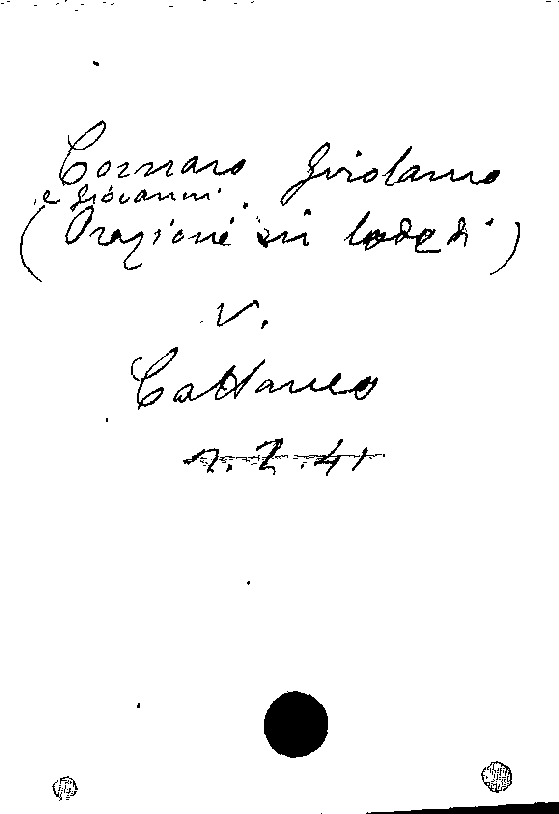 Cornaro Girolamo
e Giovanni.
(Orazione in lode di)
V.
Cattaneo
1.7.41